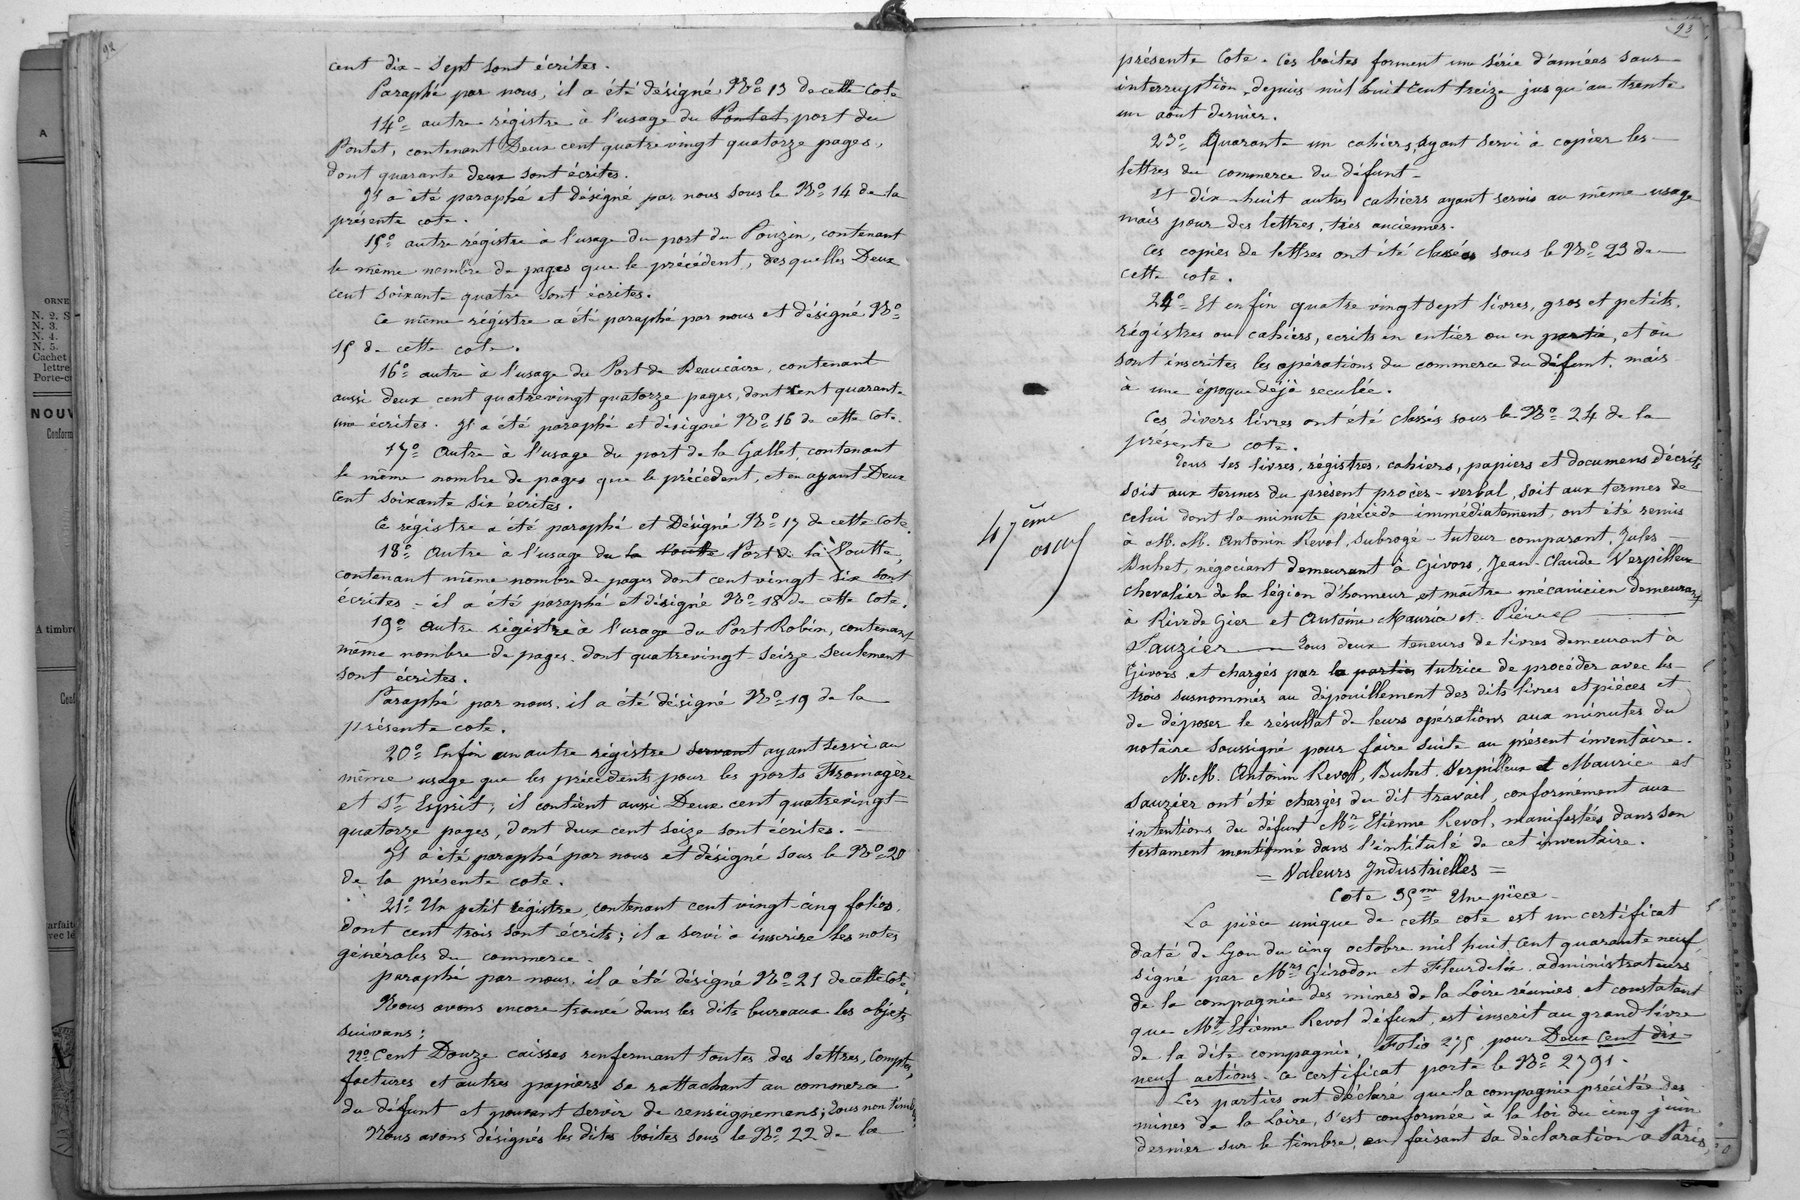 92
cent dix-sept sont écrites.
Paraphé par nous, il a été désigné No 13 de cette Cote
14o autre régistre à l'usage du Pontet port du
Pontet, contenant Deux cent quatre vingt quatorze pages,
dont quarante deux sont écrites.
Il a été paraphé et désigné par nous sous le No 14 de la
présente cote.
15o autre régistre à l'usage du port du Pouzin, contenant
le même nombre de pages que le précédent, desquelles Deux
cent soixante quatre sont écrites.
Ce même régistre a été paraphé par nous et désigné No
15 de cette cote.
16o autre à l'usage du Port de Beaucaire, contenant
aussi deux cent quatrevingt quatorze pages, dont cent quarante
une écrites. Il a été paraphé et désigné No 16 de cette Cote.
17o Autre à l'usage du port de la Gallet, contenant
le même nombre de pages que le précédent, et en ayant Deux
Cent soixante six écrites.
Ce régistre a été paraphé et Désigné No 17 de cette Cote.
18o Autre à l'usage du la Voulte Port de la Voulte,
contenant même nombre de pages dont cent vingt-six sont
écrites - il a été paraphé et désigné No 18 de cette Cote.
19o Autre régistre à l'usage du Port Robin, contenant
même nombre de pages dont quatrevingt-seize seulement
sont écrites.
Paraphé par nous, il a été désigné No 19 de la
présente cote.
20o Enfin un autre régistre servant ayant servi au
même usage que les précédents pour les ports Fromagère
et St Esprit; il contient aussi Deux cent quatrevingt-
quatorze pages, dont deux cent seize sont écrites.
Il a été paraphé par nous et désigné sous le No 20
de la présente cote.
21o Un petit régistre, contenant cent vingt-cinq folios,
dont cent trois sont écrits; il a servi à inscrire les notes
générales du commerce.
paraphé par nous, il a été désigné No 21 de cette Cote,
Nous avons encore trouvé dans les dits bureaux les objets
suivans:
22o Cent Douze caisses renfermant toutes des lettres, Comptes,
factures et autres papiers se rattachant au commerce
du défunt et pouvant servir de renseignemens; tous non timb.
Nous avons désignés les dites boites sous le No 22 de la
93
présente Cote. Ces boites forment une série d'années sans
interruption, depuis mil huit cent treize jusqu'au trente
un août dernier.
23o Quarante un cahiers ayant servi à copier les
lettres du commerce du défunt-
Et dix-huit autres cahiers ayant servis au même usage
mais pour des lettres, très anciennes.
Ces copies de lettres ont été classées sous le No 23 de
cette cote.
24o Et enfin quatre vingt sept livres, gros et petits,
régistres ou cahiers, ecrits en entier ou en partie, et où
sont inscrites les opérations du commerce du défunt, mais
à une époque déjà reculée.
Ces divers livres ont été classés sous le No 24 de la
présente cote.
Tous les livres, régistres, cahiers, papiers et documens décrits
soit aux termes du présent procès-verbal, soit aux termes de
celui dont la minute précède immédiatement, ont été remis
47ème
à M.M. Antonin Revol, subrogé-tuteur comparant, Jules
Buhet, négociant demeurant à Givors, Jean-Claude Verpilleux
chevalier de la légion d'honneur et maître mécanicien demeurant
à Rive de Gier et Antoine Maurice et Pierre
Sauzier Tous deux teneurs de livres demeurant à
Givors et chargés par la partie tutrice de procéder avec les
trois susnommés au dépouillement des dits livres et pièces et
de déposer le résultat de leurs opérations aux minutes du
notaire soussigné pour faire suite au présent inventaire.
M.M. Antonin Revol, Buhet, Verpilleux et Maurice et
Sauzier ont été chargés du dit travail, conformément aux
intentions du défunt Mr Etienne Revol, manifestées dans son
testament mentionné dans l'intitulé de cet inventaire.
= Valeurs Industrielles =
Cote 35me Une pièce
La pièce unique de cette cote est un certificat
daté de Lyon du cinq octobre mil huit cent quarante neuf
signé par Mrs Girodon et Fleurdelix administrateurs
de la compagnie des mines de la Loire réunies et constatant
que Mr Etienne Revol défunt, est inscrit au grand livre
de la dite compagnie, Folio 275 pour Deux cent dix
neuf actions. Ce certificat porte le No 2791.
Les parties ont déclaré que la compagnie précitée des
mines de la Loire, s'est conformée à la loi du cinq juin
dernier sur le timbre, en faisant sa déclaration à Paris,